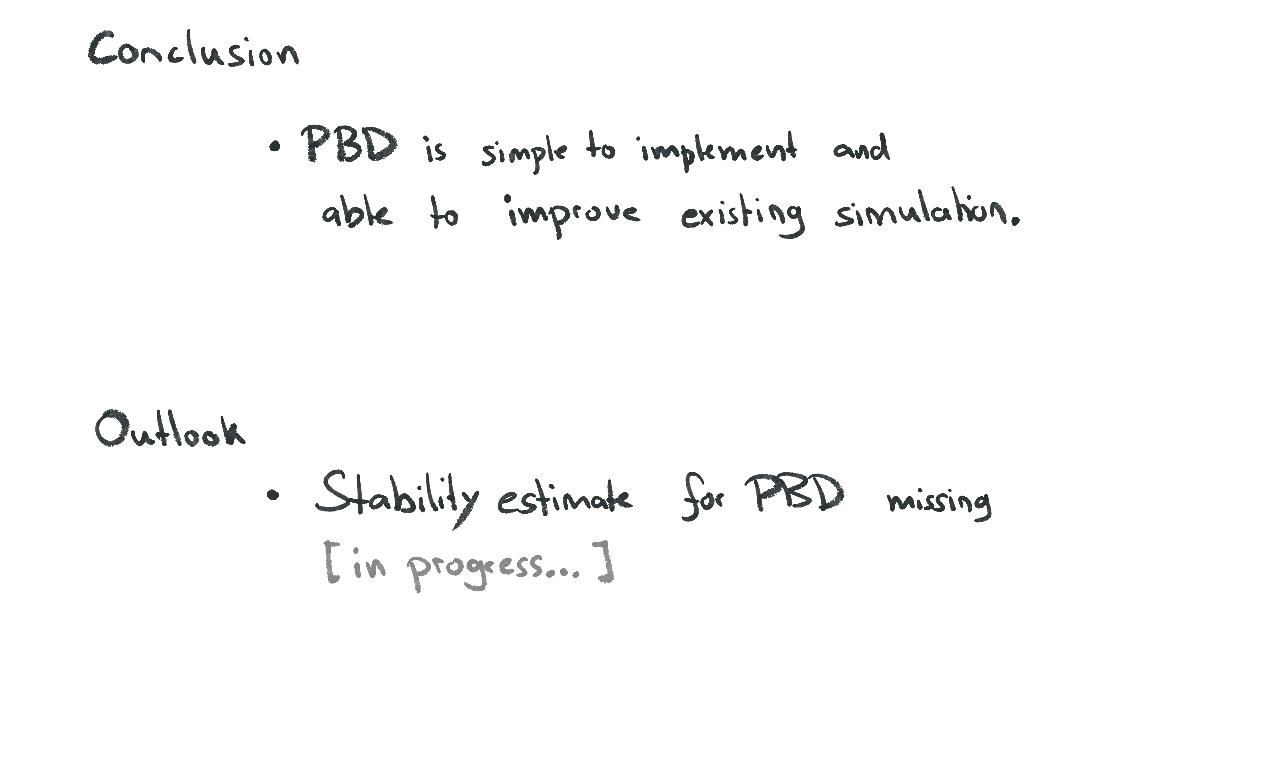 Conclusion
• PBD is simple to implement and
able to improve existing simulation.
Outlook
• Stability estimate for PBD missing
[in progress...]